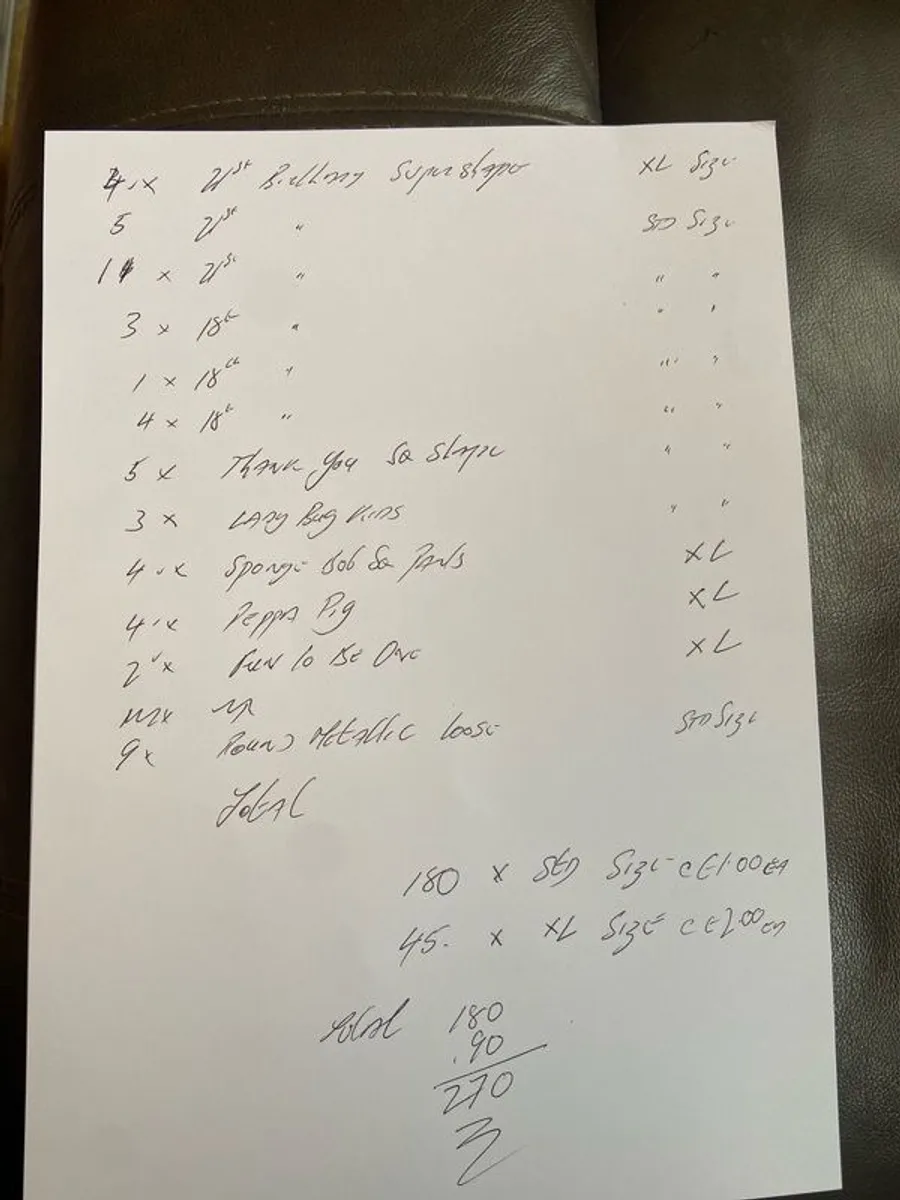 4 x 21st Birthday Supershape XL Size
5 21st " STD Size
11 x 21st " " "
3 x 18t " " "
1 x 18th " " "
4 x 18t " " "
5 x Thank you SQ Shape " "
3 x Lady Bug Kids " "
4 x Sponge Bob SQ Pants XL
4 x Peppa Pig XL
2 x Fun to Be One XL
9x Round Metallic Loose STD Size
Total
180 x STD Size @ £1.00 EA
45. x XL Size @ £2.00 EA
Total 180
.90
270